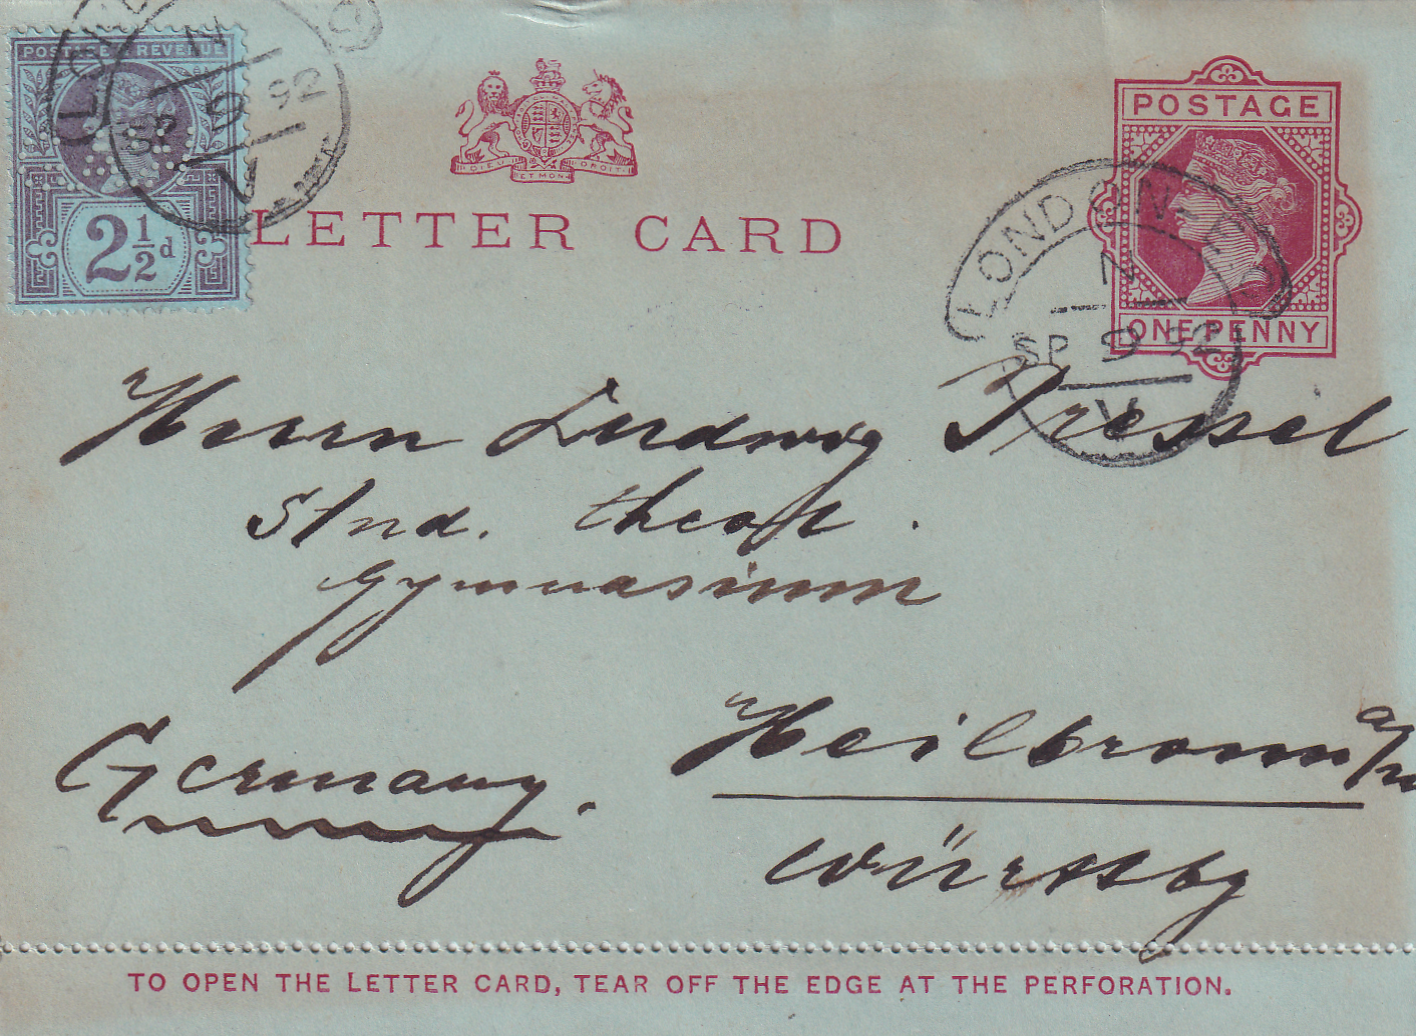 POSTAGE & REVENUE
2½d
LONDON
N
SP 9 92
V
DIEU ET MON DROIT
LETTER CARD
POSTAGE
ONE PENNY
LONDON
N
SP 9 92
V
Herrn Ludwig Pressel
Stud. theol.
Gymnasium
Heilbronn a/n
Germany.
Württbg
TO OPEN THE LETTER CARD, TEAR OFF THE EDGE AT THE PERFORATION.